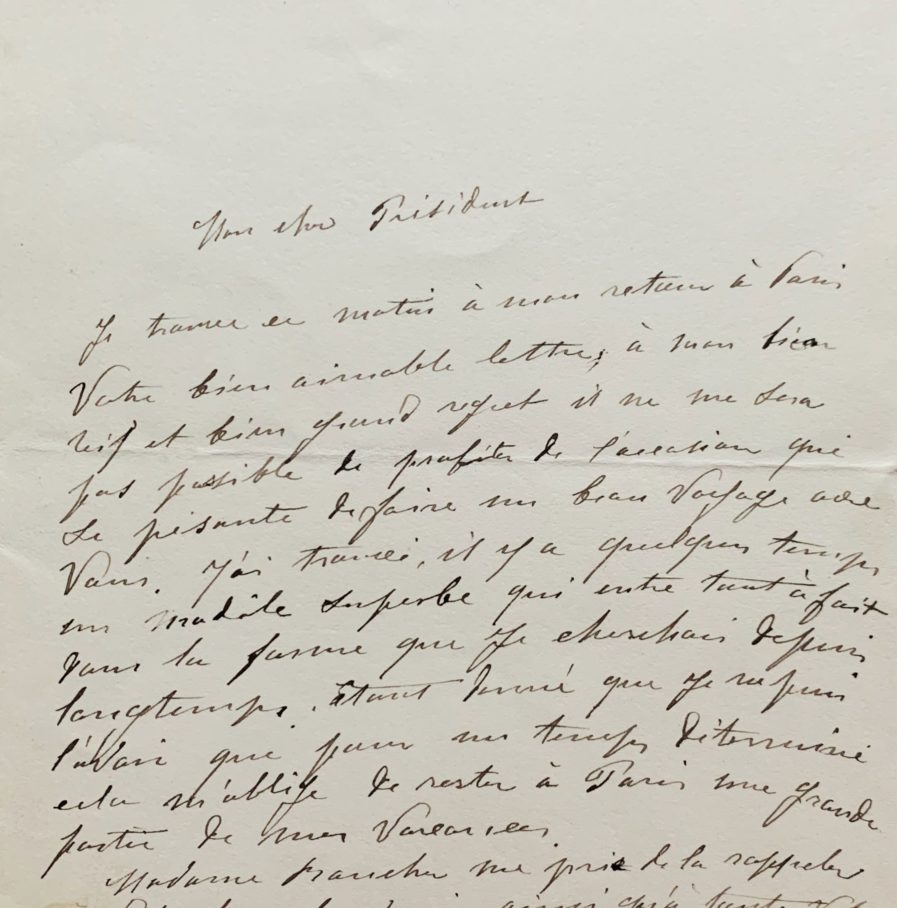 Mon cher Président
Je trouve ce matin à mon retour à Paris
Votre bien aimable lettre; à mon bien
vif et bien grand regret il ne me sera
pas possible de profiter de l'occasion qui
se présente de faire un beau Voyage avec
Vous. J'ai trouvé, il y a quelques temps
un modèle superbe qui entre tout à fait
dans la forme que je cherchais depuis
longtemps. étant donné que je ne puis
l'avoir que pour un temps déterminé
cela m'oblige de rester à Paris une grande
partie de mes Vacances
Madame me prie de la rappeler
ainsi qu'à toute